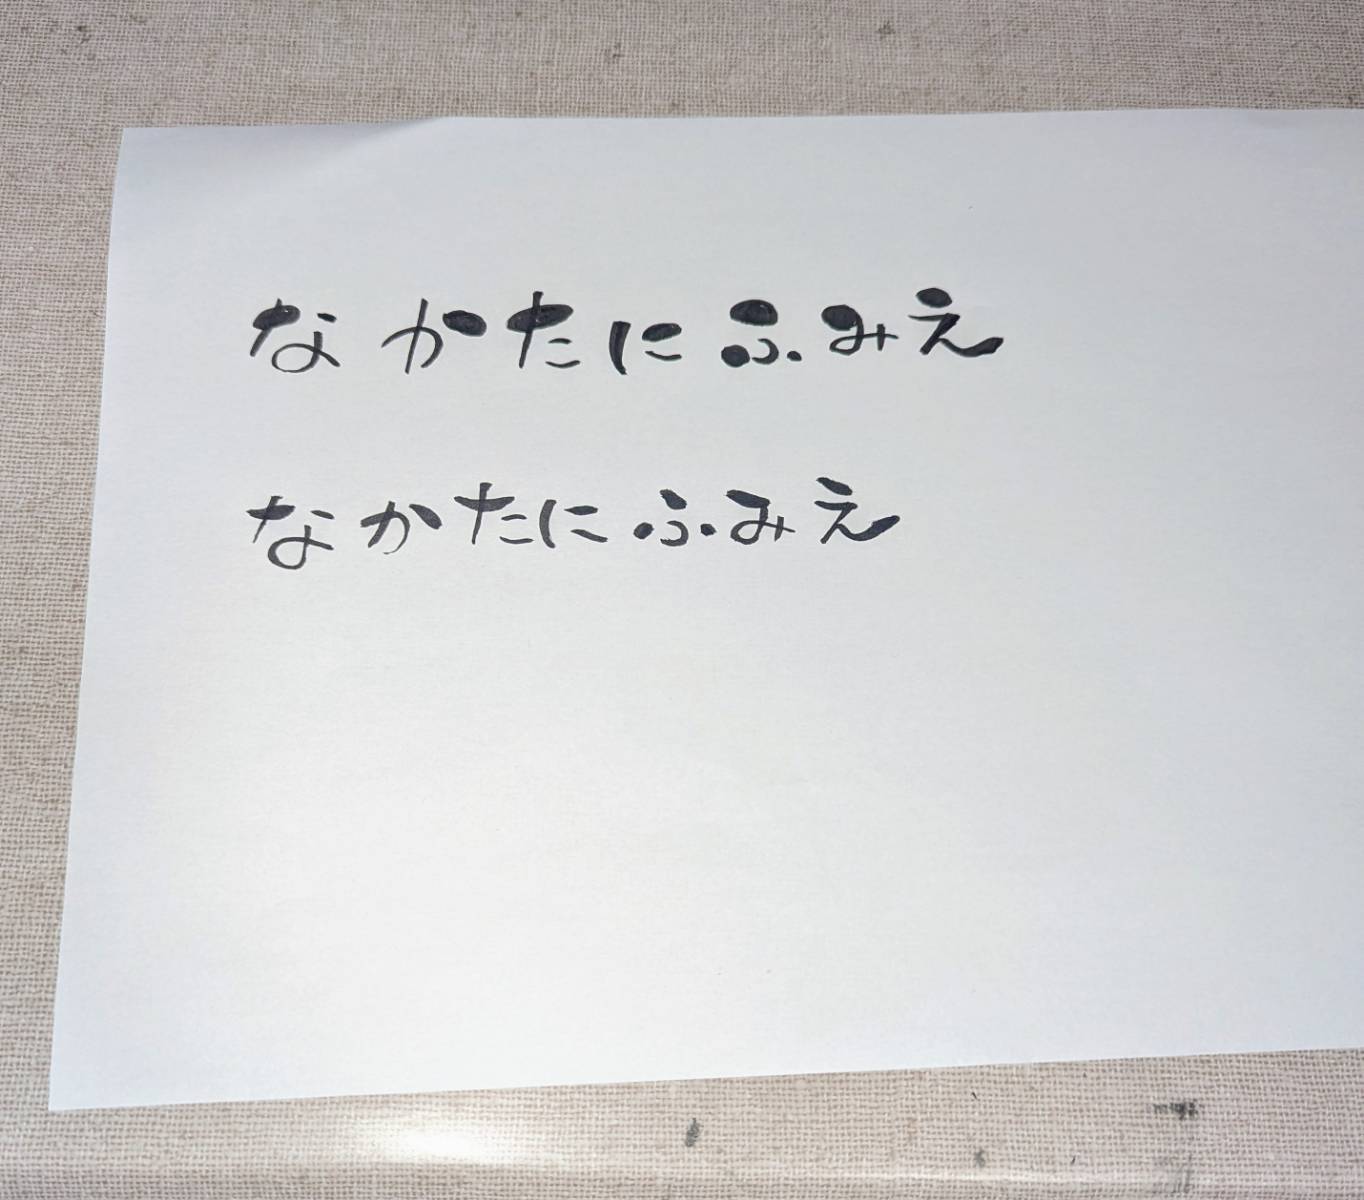 なかたにふみえ
なかたにふみえ